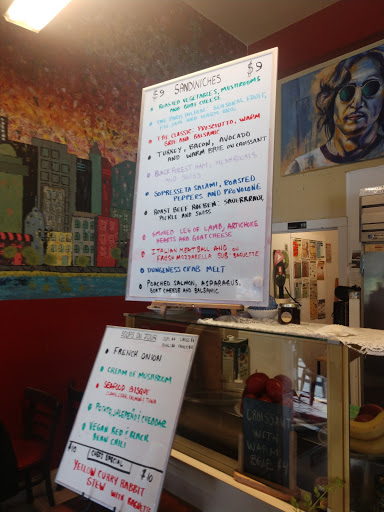 $9 SANDWICHES $9
ROASTED VEGETABLES, MUSHROOMS
AND GOAT CHEESE
THE CLASSIC- PROSCIUTTO, WARM
BRIE AND BALSAMIC
TURKEY, BACON, AVOCADO
AND WARM BRIE ON CROISSANT
BLACK FOREST HAM, MUSHROOMS
AND SWISS
SOPRESSETA SALAMI, ROASTED
PEPPERS AND PROVOLONE
ROAST BEEF REUBEN- SAUERKRAUT,
PICKLE AND SWISS
SMOKED LEG OF LAMB, ARTICHOKE
HEARTS AND GOAT CHEESE
ITALIAN MEATBALL AND ON
FRESH MOZZARELLA SUB BAGUETTE
DUNGENESS CRAB MELT
POACHED SALMON, ASPARAGUS,
GOAT CHEESE AND BALSAMIC
FRENCH ONION
CREAM OF MUSHROOM
SEAFOOD BISQUE
POTATO, JALAPENO & CHEDDAR
VEGAN RED & BLACK
BEAN CHILI
$10 CHEF'S SPECIAL $10
YELLOW CURRY RABBIT
STEW WITH BAGUETTE
CROISSANT
WITH
WARM
BRIE